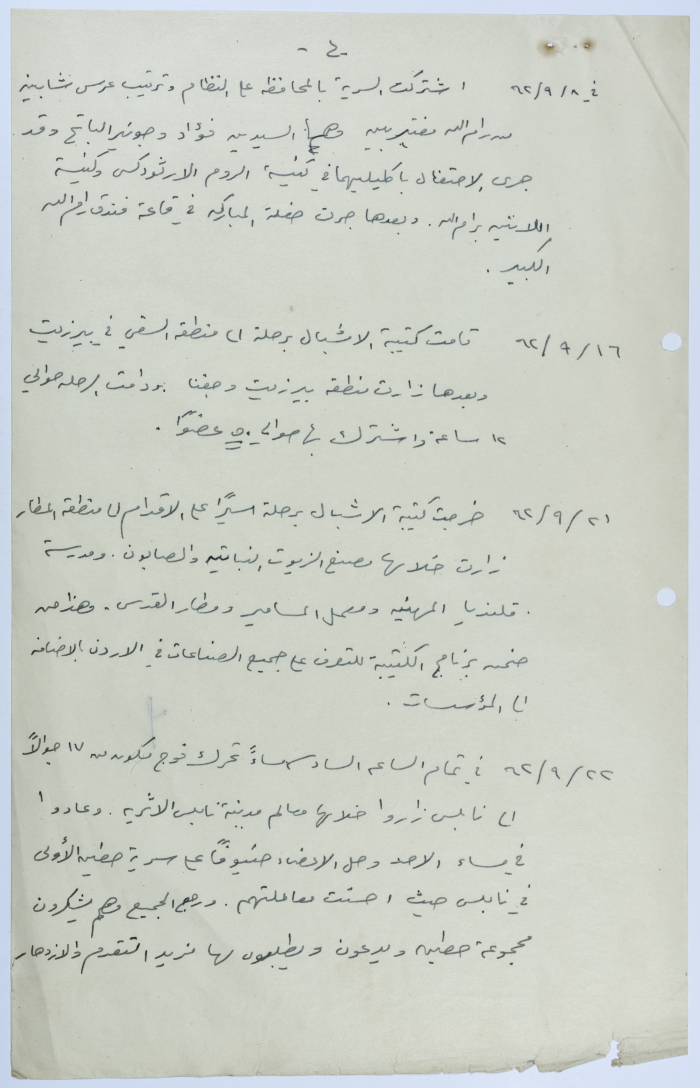 - ٤ -
في ٦٢/٩/٨ اشتركت السرية بالمحافظه على النظام وترتيب عرس شابين
من رام الله مغتربين وهما السيدين فؤاد وجونير الباتح وقد
جرى الاحتفال باكليليهما في كنيسة الروم الارثوذكس وكنيسة
اللاتين برام الله . وبعدها جرت حفلة المباركه في قاعة فندق رام الله
الكبير .
٦٢/٩/١٦ قامت كتيبة الاشبال برحلة الى منطقة السقي في بيرزيت
وبعدها زارت منطقة بيرزيت وجفنا . ودامت الرحله حوالي
١٢ ساعة واشترك بها حوالي ٥٠ عضوًا .
٦٢/٩/٢١ خرجت كتيبة الاشبال برحلة سيرًا على الاقدام الى منطقة المطار
زارت خلالها مصنع الزيوت النباتيه والصابون . ومدرسة
قلنديا المهنيه ومعمل المسامير ومطار القدس . وهذا من
ضمن برنامج الكتيبة للتعرف على جميع الصناعات في الاردن بالاضافه
الى المؤسسات .
٦٢/٩/٢٢ في تمام الساعه السادسه مساءً تحرك فوج مكون من ١٧ جوالاً
الى نابلس زاروا خلالها معالم مدينة نابلس الاثريه . وعادوا
في مساء الاحد وحل الاعضاء ضيوفًا على سرية حطين الأولى
في نابلس حيث احسنت معاملتهم . ورجع الجميع وهم يشكرون
مجموعة حطين ويدعون ويطلبون لها مزيد التقدم والازدهار